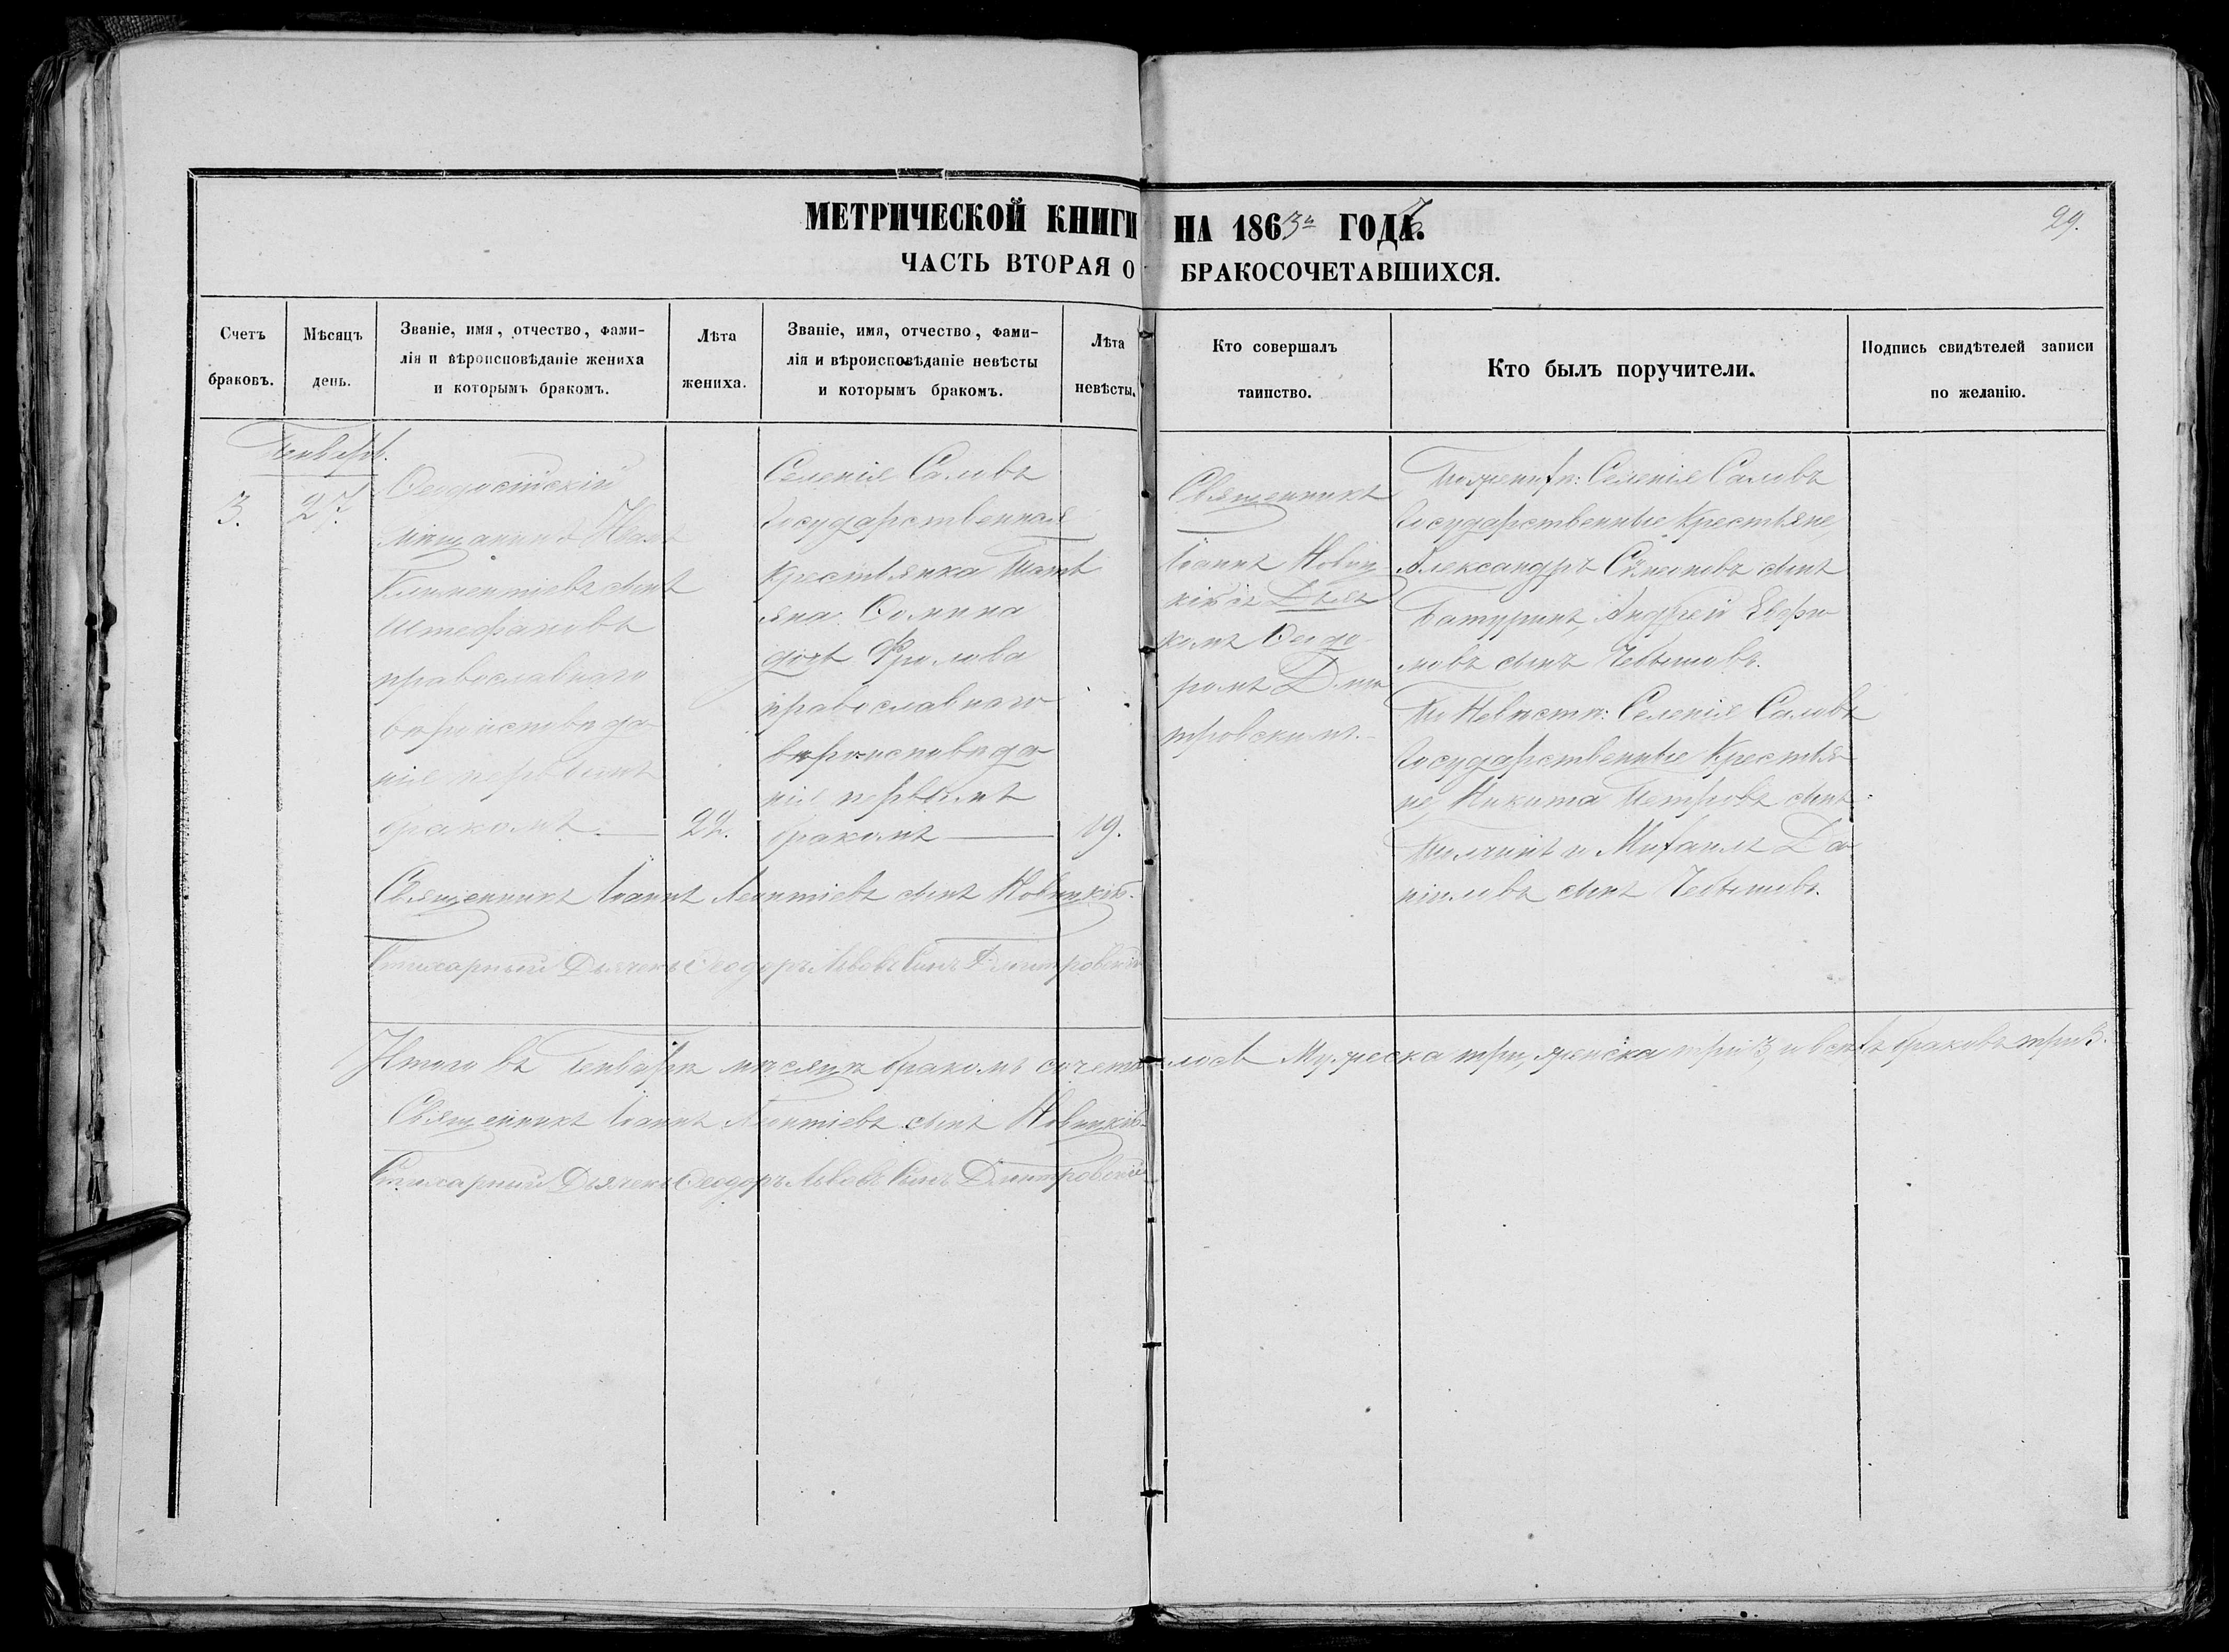 МЕТРИЧЕСКОЙ КНИГИ НА 1863й ГОДА.
29.
ЧАСТЬ ВТОРАЯ О БРАКОСОЧЕТАВШИХСЯ.
Счетъ
браковъ.
Мѣсяцъ
день.
Званіе, имя, отчество, фами-
лія и вѣроисповѣданіе жениха
и которымъ бракомъ.
Лѣта
жениха.
Званіе, имя, отчество, фами-
лія и вѣроисповѣданіе невѣсты
и которымъ бракомъ.
Лѣта
невѣсты.
Кто совершалъ
таинство.
Кто былъ поручители.
Подпись свидѣтелей записи
по желанію.
Генварь.
3.
27.
Ѳеодосійскій
мѣщанинъ Иванъ
Климентіевъ сынъ
Штефановъ
православнаго
вѣроисповѣда-
нія первымъ
бракомъ
22.
Селенія Саловъ
Государственная
крестьянка Тать
яна Ѳомина
дочь Фролова
православнаго
вѣроисповѣда
нія первымъ
бракомъ
19.
Священникъ
Іоаннъ Новиц
кій съ Дьяч
комъ Ѳеодо
ромъ Дми
тровскимъ.
По женихѣ: Селенія Саловъ
Государственные Крестьяне,
Александръ Симеоновъ сынъ
Батуринъ, Андрей Ефи
мовъ сынъ
По Невѣстѣ: Селенія Саловъ
Государственные Крестья
не, Никита Петровъ сынъ
и Михаилъ Да
ніиловъ сынъ
Священникъ Іоаннъ Леонтіевъ сынъ Новицкій.
Стихарный Дьячекъ Ѳеодоръ Львовъ Сынъ Дмитровскій
Итого въ Генварѣ мѣсяцѣ бракомъ сочета лось Мужеска три, женска три 3, и всѣхъ браковъ три 3.
Священникъ Іоаннъ Леонтіевъ сынъ Новицкій.
Стихарный Дьячекъ Ѳеодоръ Львовъ Сынъ Дмитровскій